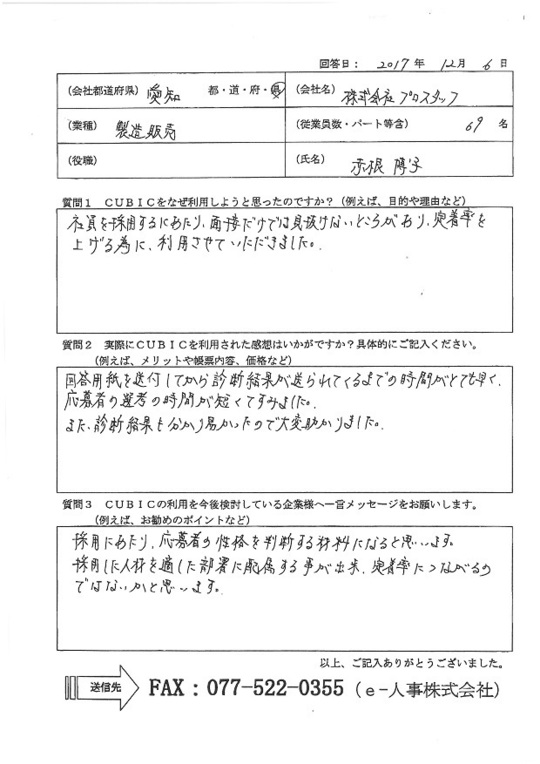 回答日： 2017 年 12 月 6 日
(会社都道府県) 愛知 都・道・府・県
(会社名) 株式会社プロスタッフ
(業種) 製造販売
(従業員数・パート等含) 69 名
(役職)
(氏名) 赤根 陽子
質問１ ＣＵＢＩＣをなぜ利用しようと思ったのですか？（例えば、目的や理由など）
社員を採用するにあたり、面接だけでは見抜けないところがあり、定着率を
上げる為に、利用させていただきました。
質問２ 実際にＣＵＢＩＣを利用された感想はいかがですか？具体的にご記入ください。
（例えば、メリットや帳票内容、価格など）
回答用紙を送付してから診断結果が送られてくるまでの時間がとても早く、
応募者の選考の時間が短くてすみました。
また、診断結果も分かり易かったので大変助かりました。
質問３ ＣＵＢＩＣの利用を今後検討している企業様へ一言メッセージをお願いします。
（例えば、お勧めのポイントなど）
採用にあたり、応募者の性格を判断する材料になると思います。
採用した人材を適した部署に配属する事が出来、定着率につながるの
ではないかと思います。
以上、ご記入ありがとうございました。
送信先 FAX：077-522-0355（e-人事株式会社）